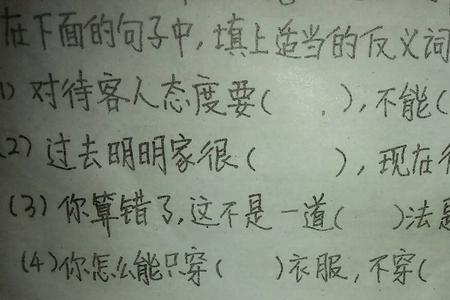 在下面的句子中,填上适当的反义词
1) 对待客人态度要(   ),不能(
2) 过去明明家很(   ),现在
(3) 你算错了,这不是一道(   )法
(4)你怎么能只穿(   )衣服,不穿(